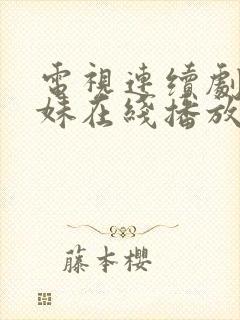 電視連續劇
妹在綫播放
藤本櫻